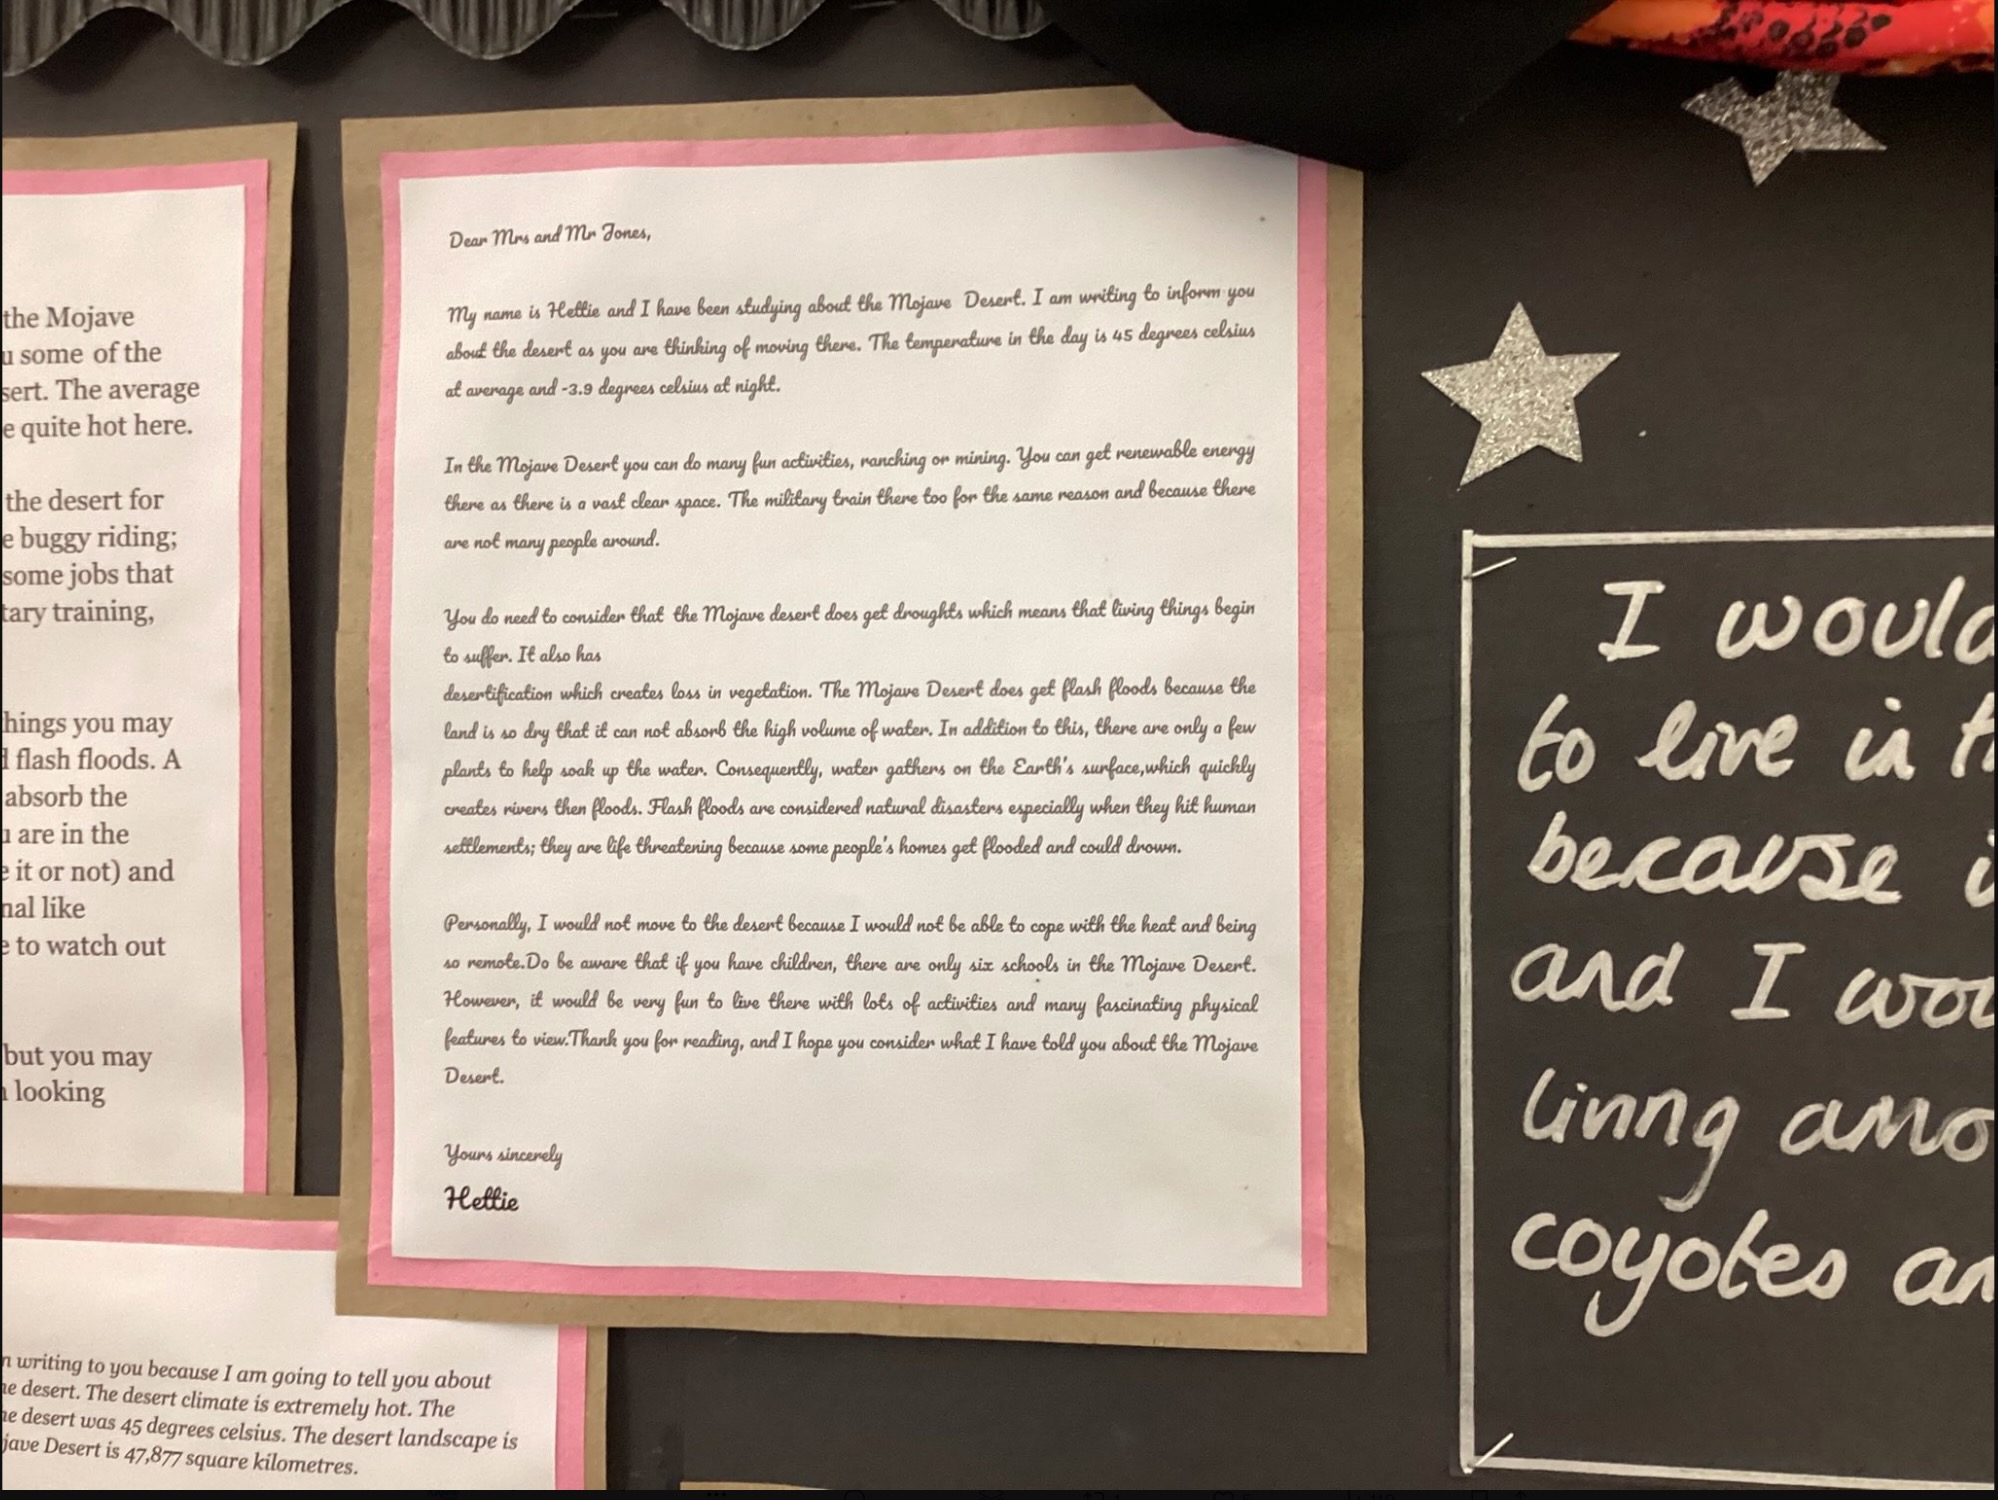 the Mojave
some of the
The average
quite hot here.
the desert for
buggy riding;
some jobs that
training,
things you may
flash floods. A
absorb the
are in the
it or not) and
like
to watch out
but you may
looking
Dear Mrs and Mr Jones,
My name is Hettie and I have been studying about the Mojave Desert. I am writing to inform you
about the desert as you are thinking of moving there. The temperature in the day is 45 degrees celsius
at average and -3.9 degrees celsius at night.
In the Mojave Desert you can do many fun activities, ranching or mining. You can get renewable energy
there as there is a vast clear space. The military train there too for the same reason and because there
are not many people around.
You do need to consider that the Mojave desert does get droughts which means that living things begin
to suffer. It also has
desertification which creates loss in vegetation. The Mojave Desert does get flash floods because the
land is so dry that it can not absorb the high volume of water. In addition to this, there are only a few
plants to help soak up the water. Consequently, water gathers on the Earth's surface,which quickly
creates rivers then floods. Flash floods are considered natural disasters especially when they hit human
settlements; they are life threatening because some people's homes get flooded and could drown.
Personally, I would not move to the desert because I would not be able to cope with the heat and being
so remote.Do be aware that if you have children, there are only six schools in the Mojave Desert.
However, it would be very fun to live there with lots of activities and many fascinating physical
features to view.Thank you for reading, and I hope you consider what I have told you about the Mojave
Desert.
Yours sincerely
Hettie
writing to you because I am going to tell you about
desert. The desert climate is extremely hot. The
desert was 45 degrees celsius. The desert landscape is
Desert is 47,877 square kilometres.
I would
to live in
because
and I
living
coyotes